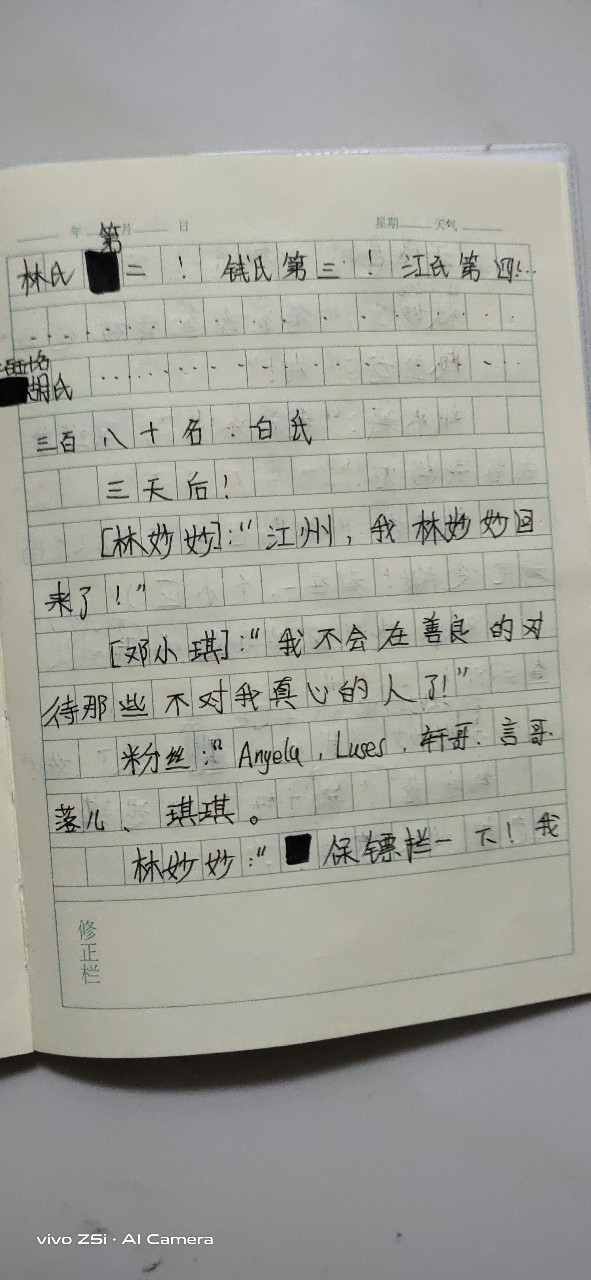 年 月 日 星期 天气
第
林氏 二！ 钱氏第三！ 江氏第四！..
胡氏
三百八十名.白氏
三天后！
[林妙妙]：“江州，我林妙妙回
来了！”
[邓小琪]：“我不会在善良的对
待那些不对我真心的人了！”
粉丝：“Angela，Luses、轩哥、言哥.
落儿、琪琪。
林妙妙：“ 保镖栏一下！我
修正栏
vivo Z5i · AI Camera